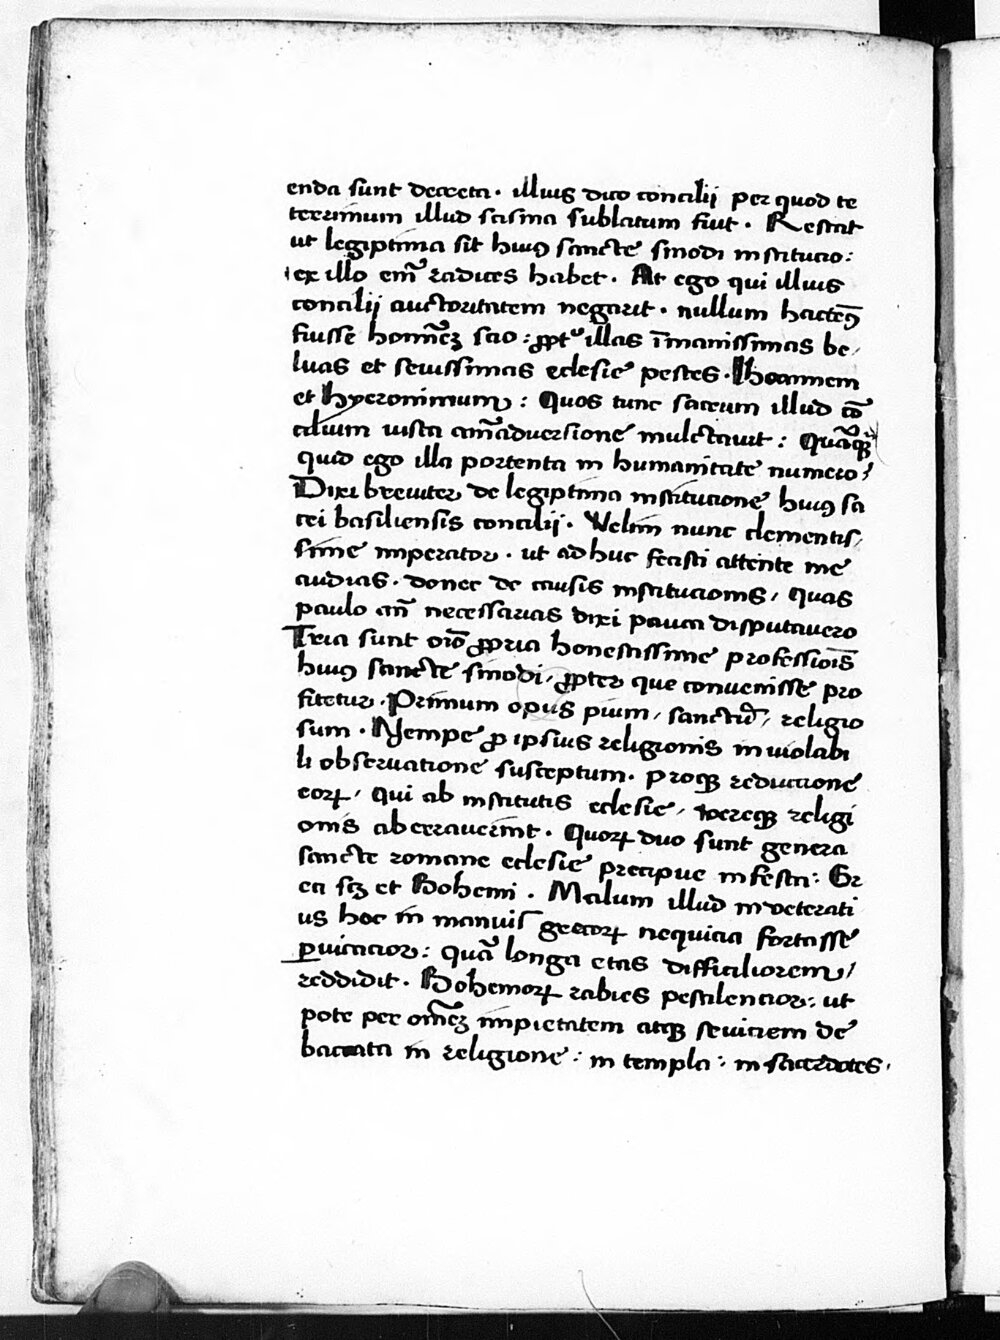 enda sunt decreta · illius dico concilij per quod te
terrimum illud scisma sublatum fiut · Restat
ut legiptima sit huiꝰ sancte sinodi institucio :
ex illo em̄ radices habet · At ego qui illius
concilij auctoritatem negarit · nullum hactenꝰ
fuisse homīeꝫ scio : ꝓptᵉ illas īmanissimas be,
luas et seuissimas eclesie pestes · Ihoannem
et Hyeronimum : Quos tunc sacrum illud cō
cilium iusta am̄aduersione mulctauit : Quāqꝫ
quid ego illa portenta in humanitate numero ,
Dixi breuiter de legiptima institucione huiꝰ sa
cri basiliensis concilij · Velim nunc clementis,
sime imperator · ut adhuc fecisti attente me
audias · donec de causis institucionis , quas
paulo an̄ necessarias dixi pauca disputauero
Tria sunt oīo ꝓpria honestissime professiōis
huiꝰ sancte sinodi , ꝓpter que conuenisse pro
fitetur · Primum opus pium , sanctū , religio
sum · Nempe ꝓ ipsius religionis inuiolabi
li obseruatione susceptum · proqꝫ reductione
eoꝝ , qui ab institutis eclesie , vereqꝫ religi
onis aberrauerint · Quoꝝ duo sunt genera
sancte romane eclesie precipue infesta : Gr
eci sꝫ et Bohemi · Malum illud inveterati
us hoc in manuis grecoꝝ nequicia fortasse
ꝑuicacior : quā longa etas difficiliorem ,
reddidit · Bohemoꝝ rabies pestilencior : ut
pote per om̄eꝫ impietatem atqꝫ seuiciem de
baccata in religione : in templa : in sacerdotes ,